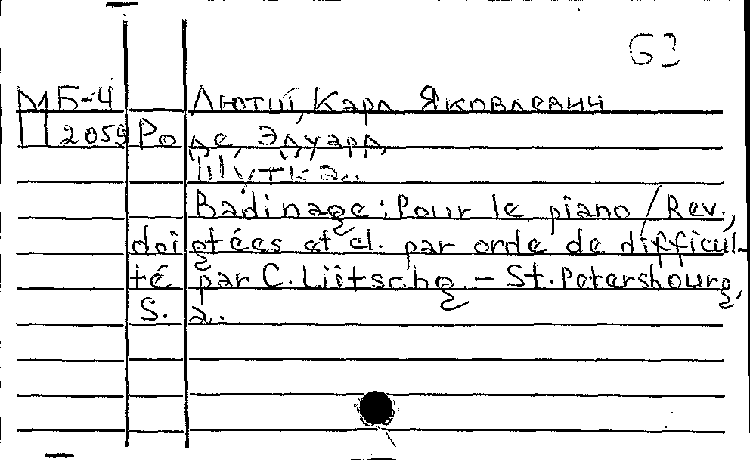 63
МБ-4 Лютш, Карл Яковлевич
П 2059 Роде, Эдуард
Шутка..
Badinage: Pour le piano / Rev.,
doigtées et cl. par orde de difficul-
té par C. Lütschg. - St. Petersbourg,
S. a.